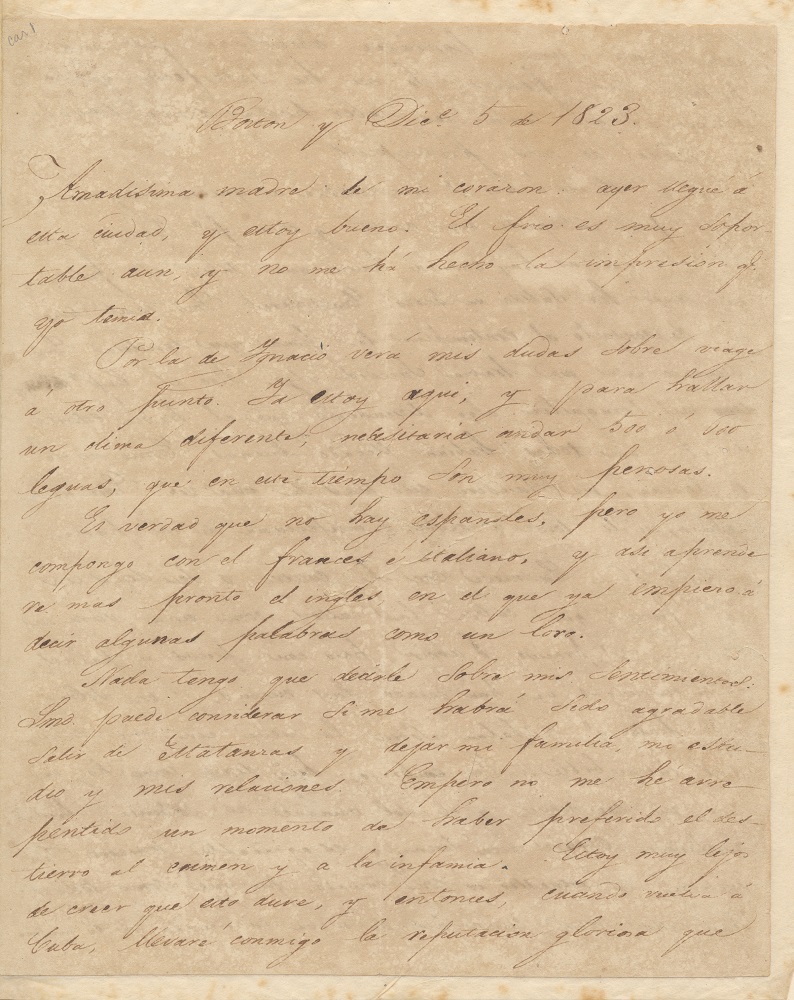 car 1
Boston y Dice. 5 de 1823.
Amadísima madre de mi corazon: ayer llegué á
esta ciudad, y estoy bueno. El frio es muy sopor-
table aun, y no me há hecho la impresión q.
yo temia.
Por la de Ignacio verá mis dudas sobre viage
á otro punto. Ya estoy aqui, y para hallar
un clima diferente, necesitaria andar 500 ó
leguas, que en este tiempo son muy penosas.
Es verdad que no hay españoles, pero yo me
compongo con el frances é italiano, y asi aprende
ré mas pronto el ingles, en el que ya empiezo á
decir algunas palabras como un loro.
Nada tengo que decirle sobre mis sentimientos:
Smd. puede considerar si me habrá sido agradable
salir de Matanzas y dejar mi familia, mi estu-
dio y mis relaciones. Empero no me hé arre
pentido un momento de haber preferido el des-
tierro al crimen y a la infamia. Estoy muy lejos
de creer que esto dure, y entonces, cuando vuelva á
Cuba, llevaré conmigo la reputacion gloriosa que